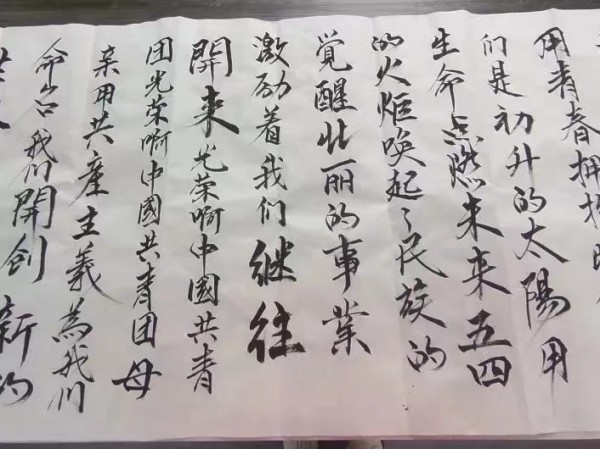 用青春拥抱
们是初升的太陽用
生命点燃未来五四
的火炬唤起了民族的
覚醒壮丽的事業
激励着我们继往
開来光荣啊中國共青
团光荣啊中國共青团母
亲用共産主義為我们
命名我们開创新的